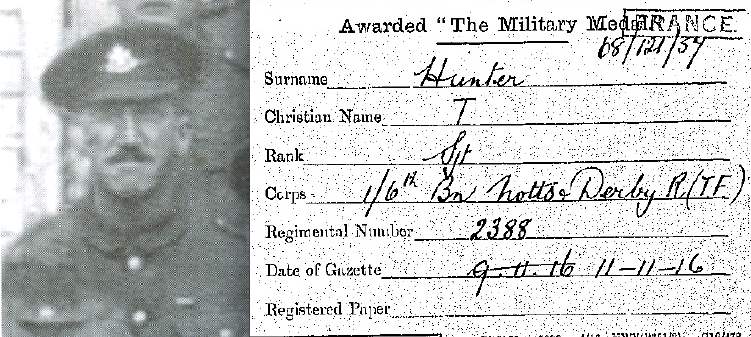 Awarded "The Military Medal FRANCE
68/121/37
Surname Hunter
Christian Name T
Rank Sjt
Corps - 1/6th Bn Notts & Derby R (TF)
Regimental Number 2388
Date of Gazette 9.11.16 11-11-16
Registered Paper